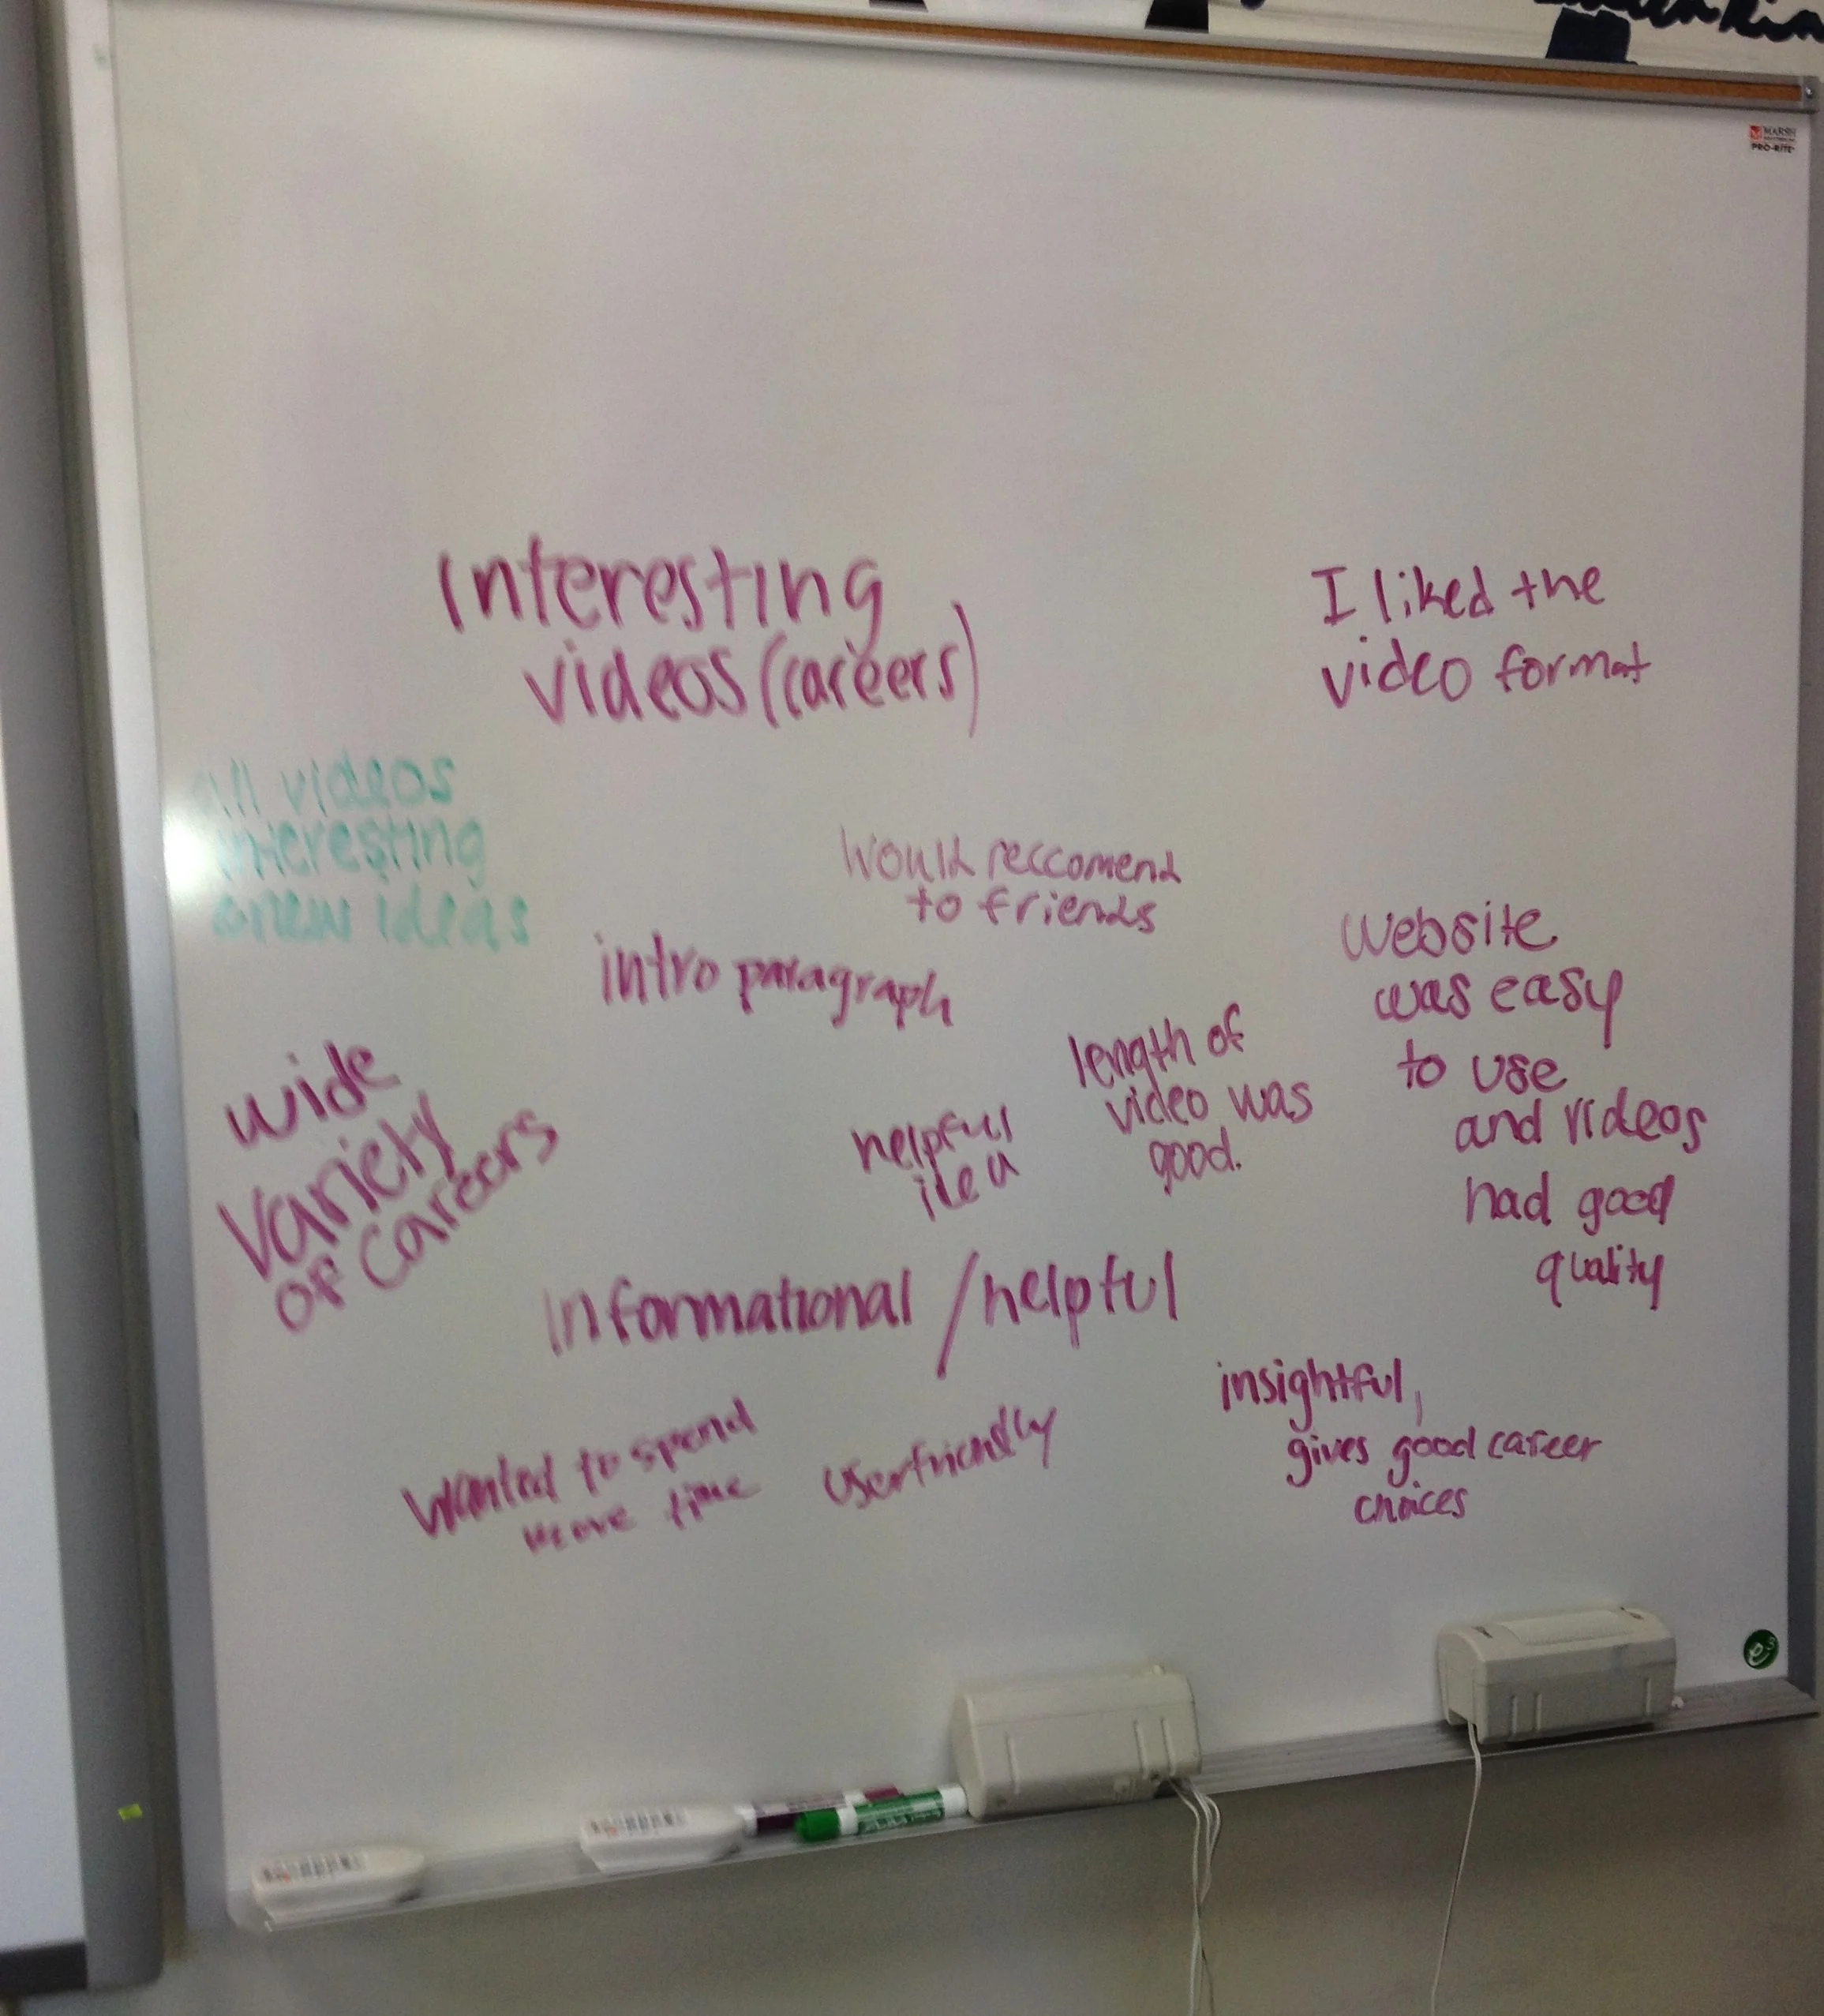 MARSH
PRO-RITE
Interesting
videos (careers)
I liked the
video format
all videos
interesting
new ideas
Would reccomend
to friends
intro paragraph
website
was easy
to use
and videos
had good
quality
length of
video was
good.
wide
variety
of careers
helpful
idea
Informational / helpful
insightful,
gives good career
choices
Wanted to spend
more time
userfriendly
e3